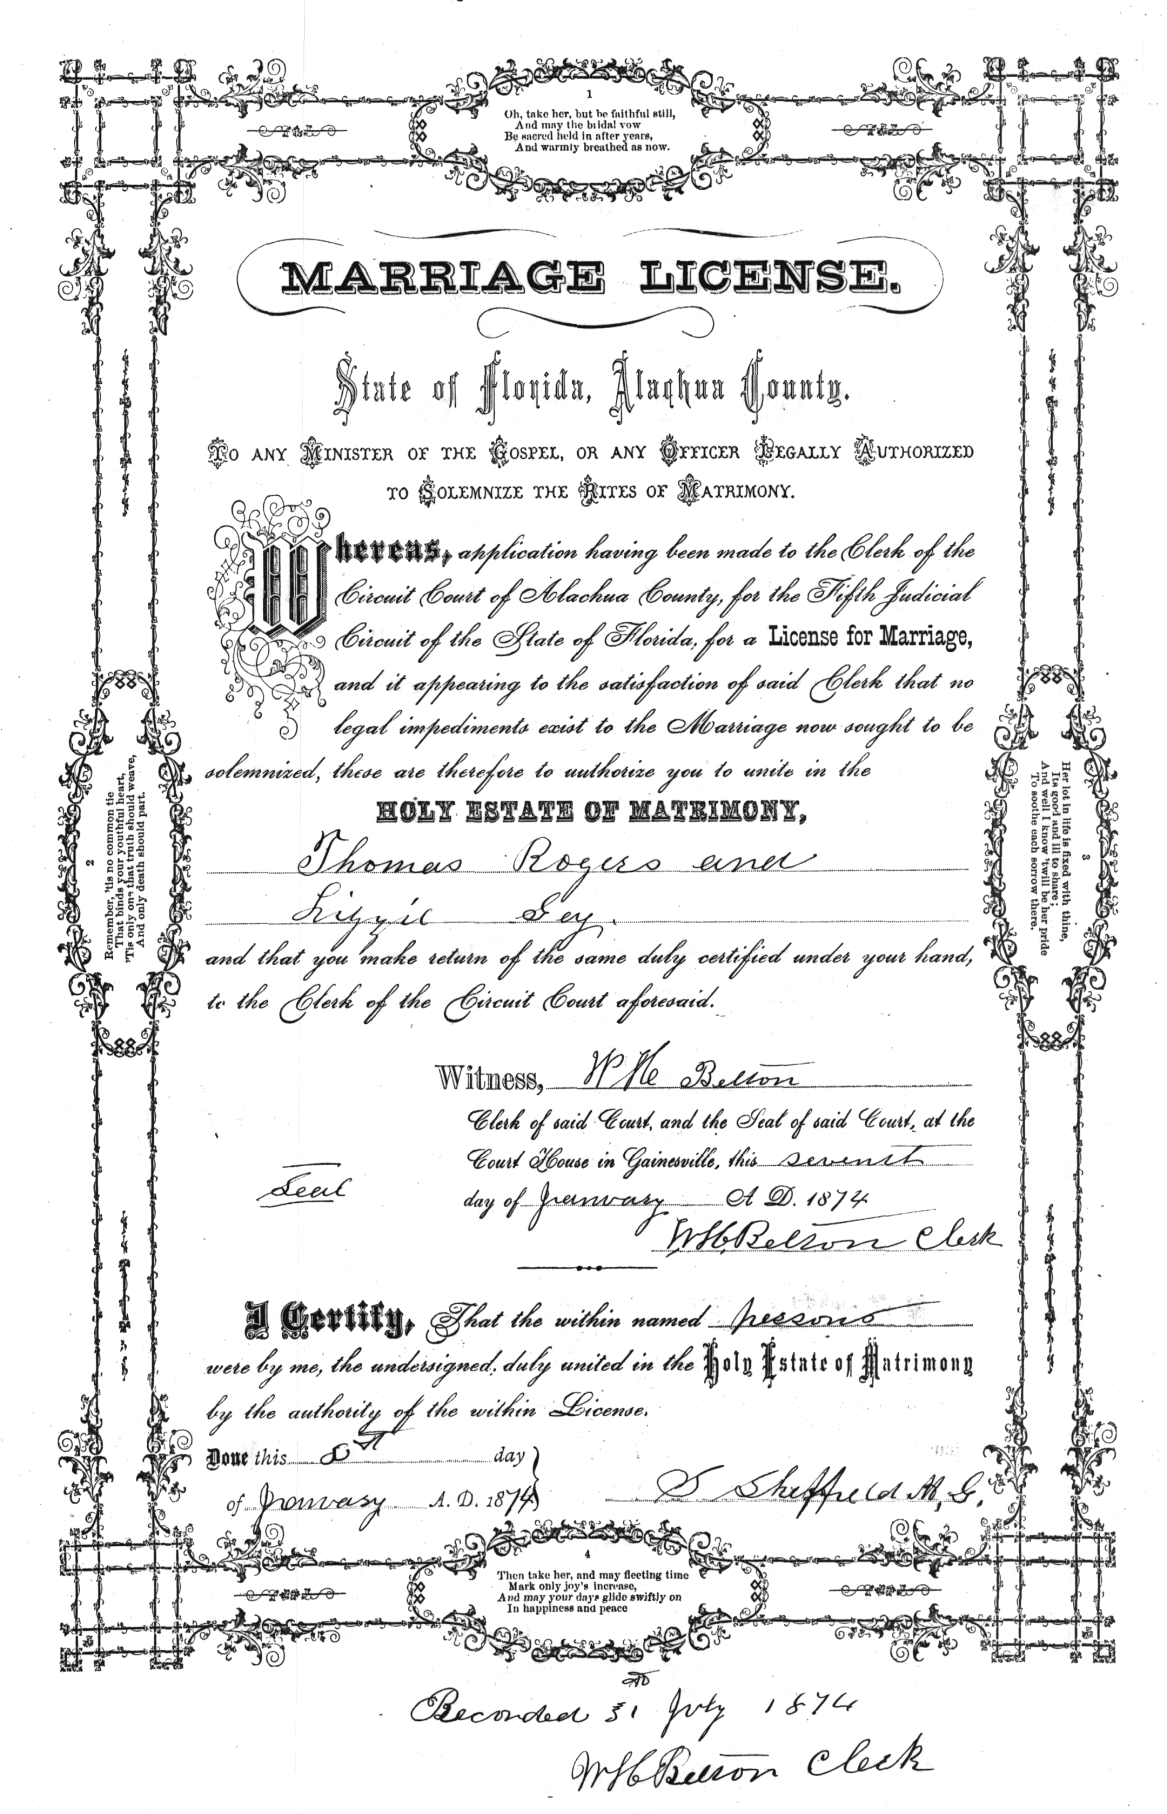 1
Oh, take her, but be faithful still,
And may the bridal vow
Be sacred held in after years,
And warmly breathed as now.
MARRIAGE LICENSE.
State of Florida, Alachua County.
TO ANY MINISTER OF THE GOSPEL, OR ANY OFFICER LEGALLY AUTHORIZED
TO SOLEMNIZE THE RITES OF MATRIMONY.
Whereas, application having been made to the Clerk of the
Circuit Court of Alachua County, for the Fifth Judicial
Circuit of the State of Florida, for a License for Marriage,
and it appearing to the satisfaction of said Clerk that no
legal impediments exist to the Marriage now sought to be
solemnized, these are therefore to authorize you to unite in the
HOLY ESTATE OF MATRIMONY,
Thomas Rogers and
Lizzie
and that you make return of the same duly certified under your hand,
to the Clerk of the Circuit Court aforesaid.
Witness, W H Belton
Clerk of said Court, and the Seal of said Court, at the
Court House in Gainesville, this
Seal
day of January A D. 1874
W H Belton Clerk
I Certify, That the within named persons
were by me, the undersigned, duly united in the Holy Estate of Matrimony
by the authority of the within License.
Done this 8th day
of January A. D. 1874
S Sheffield M. G.
2
Remember, 'tis no common tie
That binds your youthful heart,
'Tis only one that truth should weave,
And only death should part.
3
Her lot in life is fixed with thine,
Its good and ill to share;
And well I know 'twill be her pride
To soothe each sorrow there.
4
Then take her, and may fleeting time
Mark only joy's increase,
And may your days glide swiftly on
In happiness and peace
Recorded 31 July 1874
W H Belton Clerk